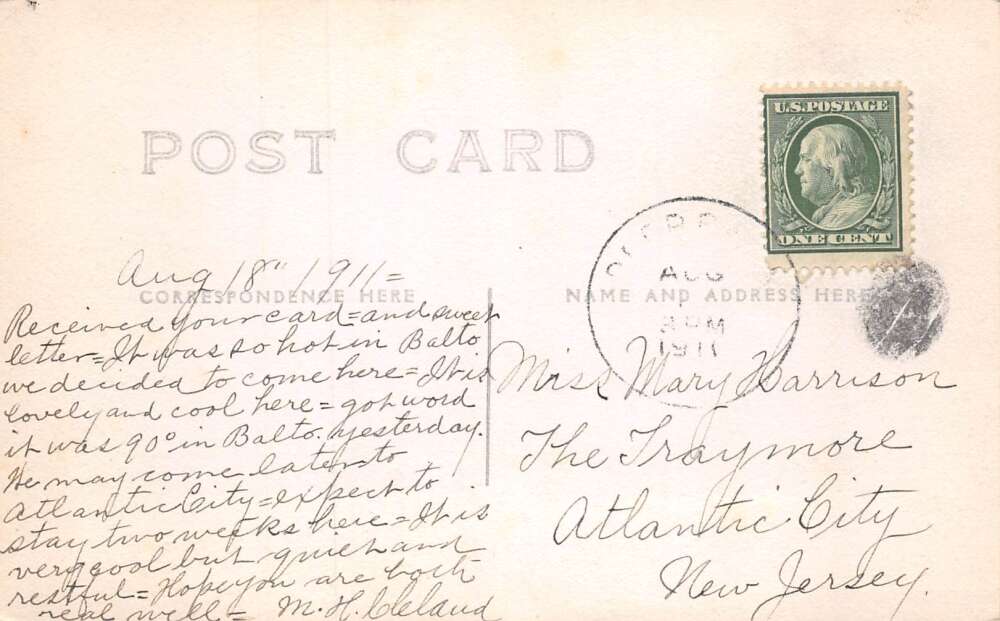 POST CARD
U.S. POSTAGE
ONE CENT
AUG
PM
1911
Aug 18" 1911=
CORRESPONDENCE HERE
NAME AND ADDRESS HERE
Received your card=and sweet
letter=It was so hot in Balto
we decided to come here=It is
lovely and cool here=got word
it was 90° in Balto. yesterday.
We may come later to
Atlantic City=expect to
stay two weeks here=It is
very cool but quiet and
restful=Hope you are both
real well= M. H. Cleland
Miss Mary Harrison
The Traymore
Atlantic City
New Jersey.